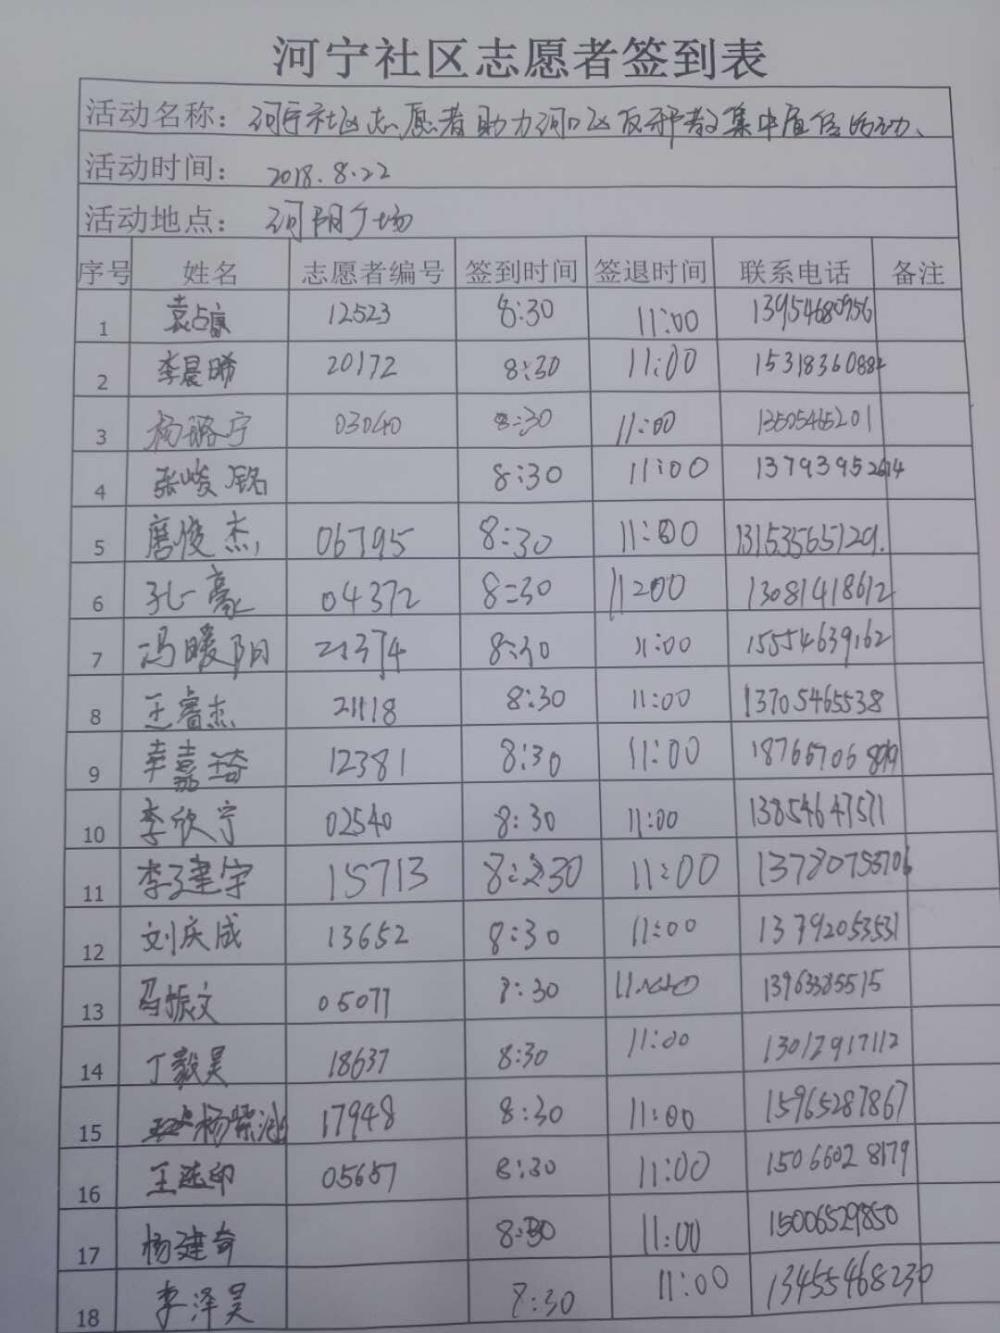 河宁社区志愿者签到表
活动名称：河宁社区志愿者助力河口区反邪教集中宣传活动、
活动时间：2018.8.22
活动地点：河阳广场
序号 姓名 志愿者编号 签到时间 签退时间 联系电话 备注
1 袁占富 12523 8:30 11:00 13954680956
2 李晨晞 20172 8:30 11:00
3 杨璐宁 03040 8:30 11:00 13505465201
4 张峻铭 8:30 11:00
5 唐俊杰 06795 8:30 11:00 13153565129.
6 孔一豪 04372 8:30 11:00 13081418612
7 冯暖阳 21374 8:30 11:00 15554639162
8 王睿杰 21118 8:30 11:00 13705465538
9 嘉琦 12381 8:30 11:00
10 李欣宁 02540 8:30 11:00 13854647571
11 李建宇 15713 8:30 11:00
12 刘庆成 13652 8:30 11:00 13792053531
13 马振文 05077 8:30 11:00 13963385515
14 丁毅昊 18637 8:30 11:00 13012917112
15 杨紫涵 17948 8:30 11:00 15965287867
16 王选印 05657 8:30 11:00 15066028179
17 杨建奇 8:30 11:00 15006529850
18 李泽昊 8:30 11:00 13455468230